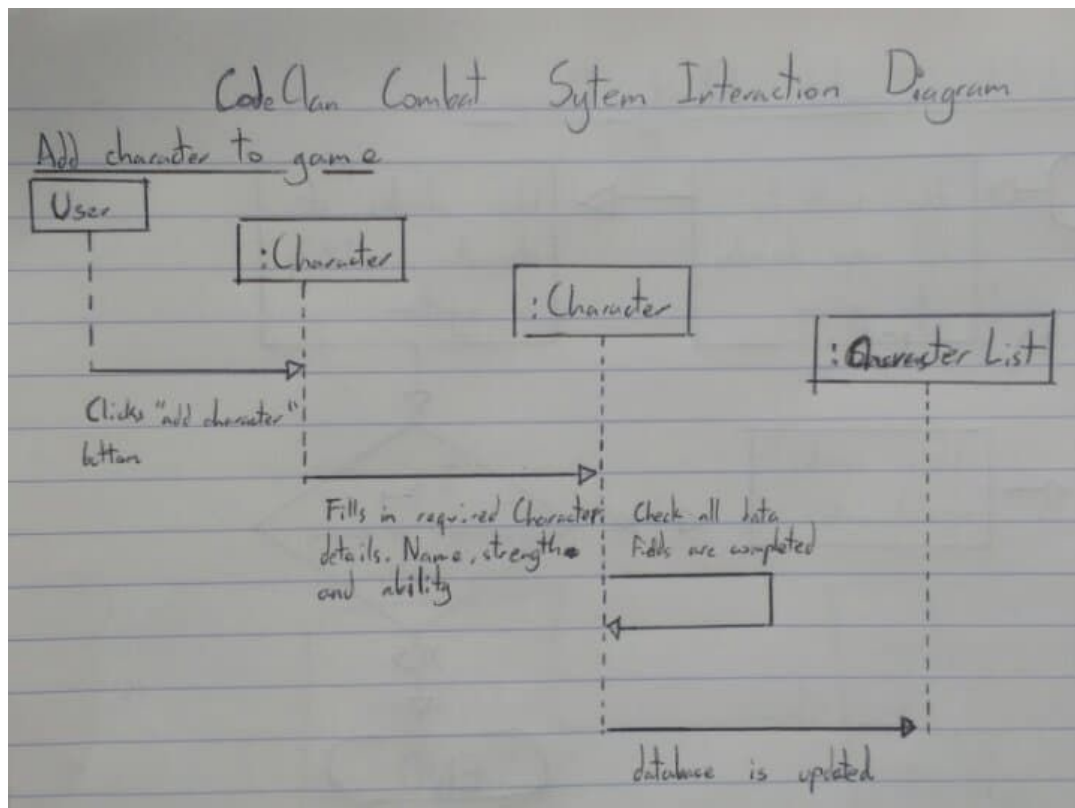 CodeClan Combat Sytem Interaction Diagram
Add character to game
User
:Character
:Character
:Character List
Clicks "add character"
button
Fills in required Character
details. Name, strength
and ability
Check all data
fields are completed
database is updated